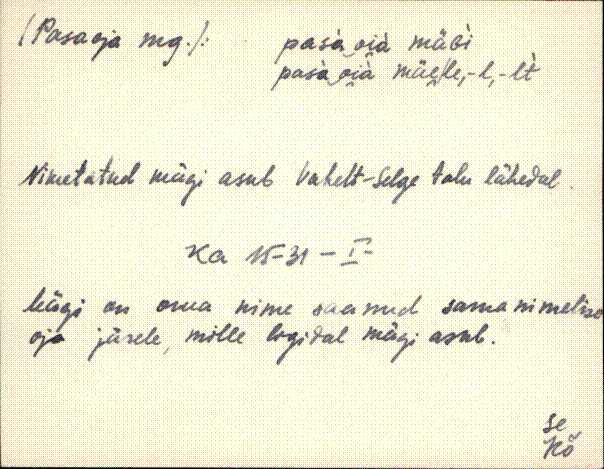 (Pasaoja mg.): pasà oià mäGì
pasà oià mäele, -l, -lt
Nimetatud mägi asub Vakelt-Selge talu lähedal.
Ka 15-31 - I -
Mägi on oma nime saanud samanimelise
oja järele, mille ligidal mägi asub.
Se
Kõ